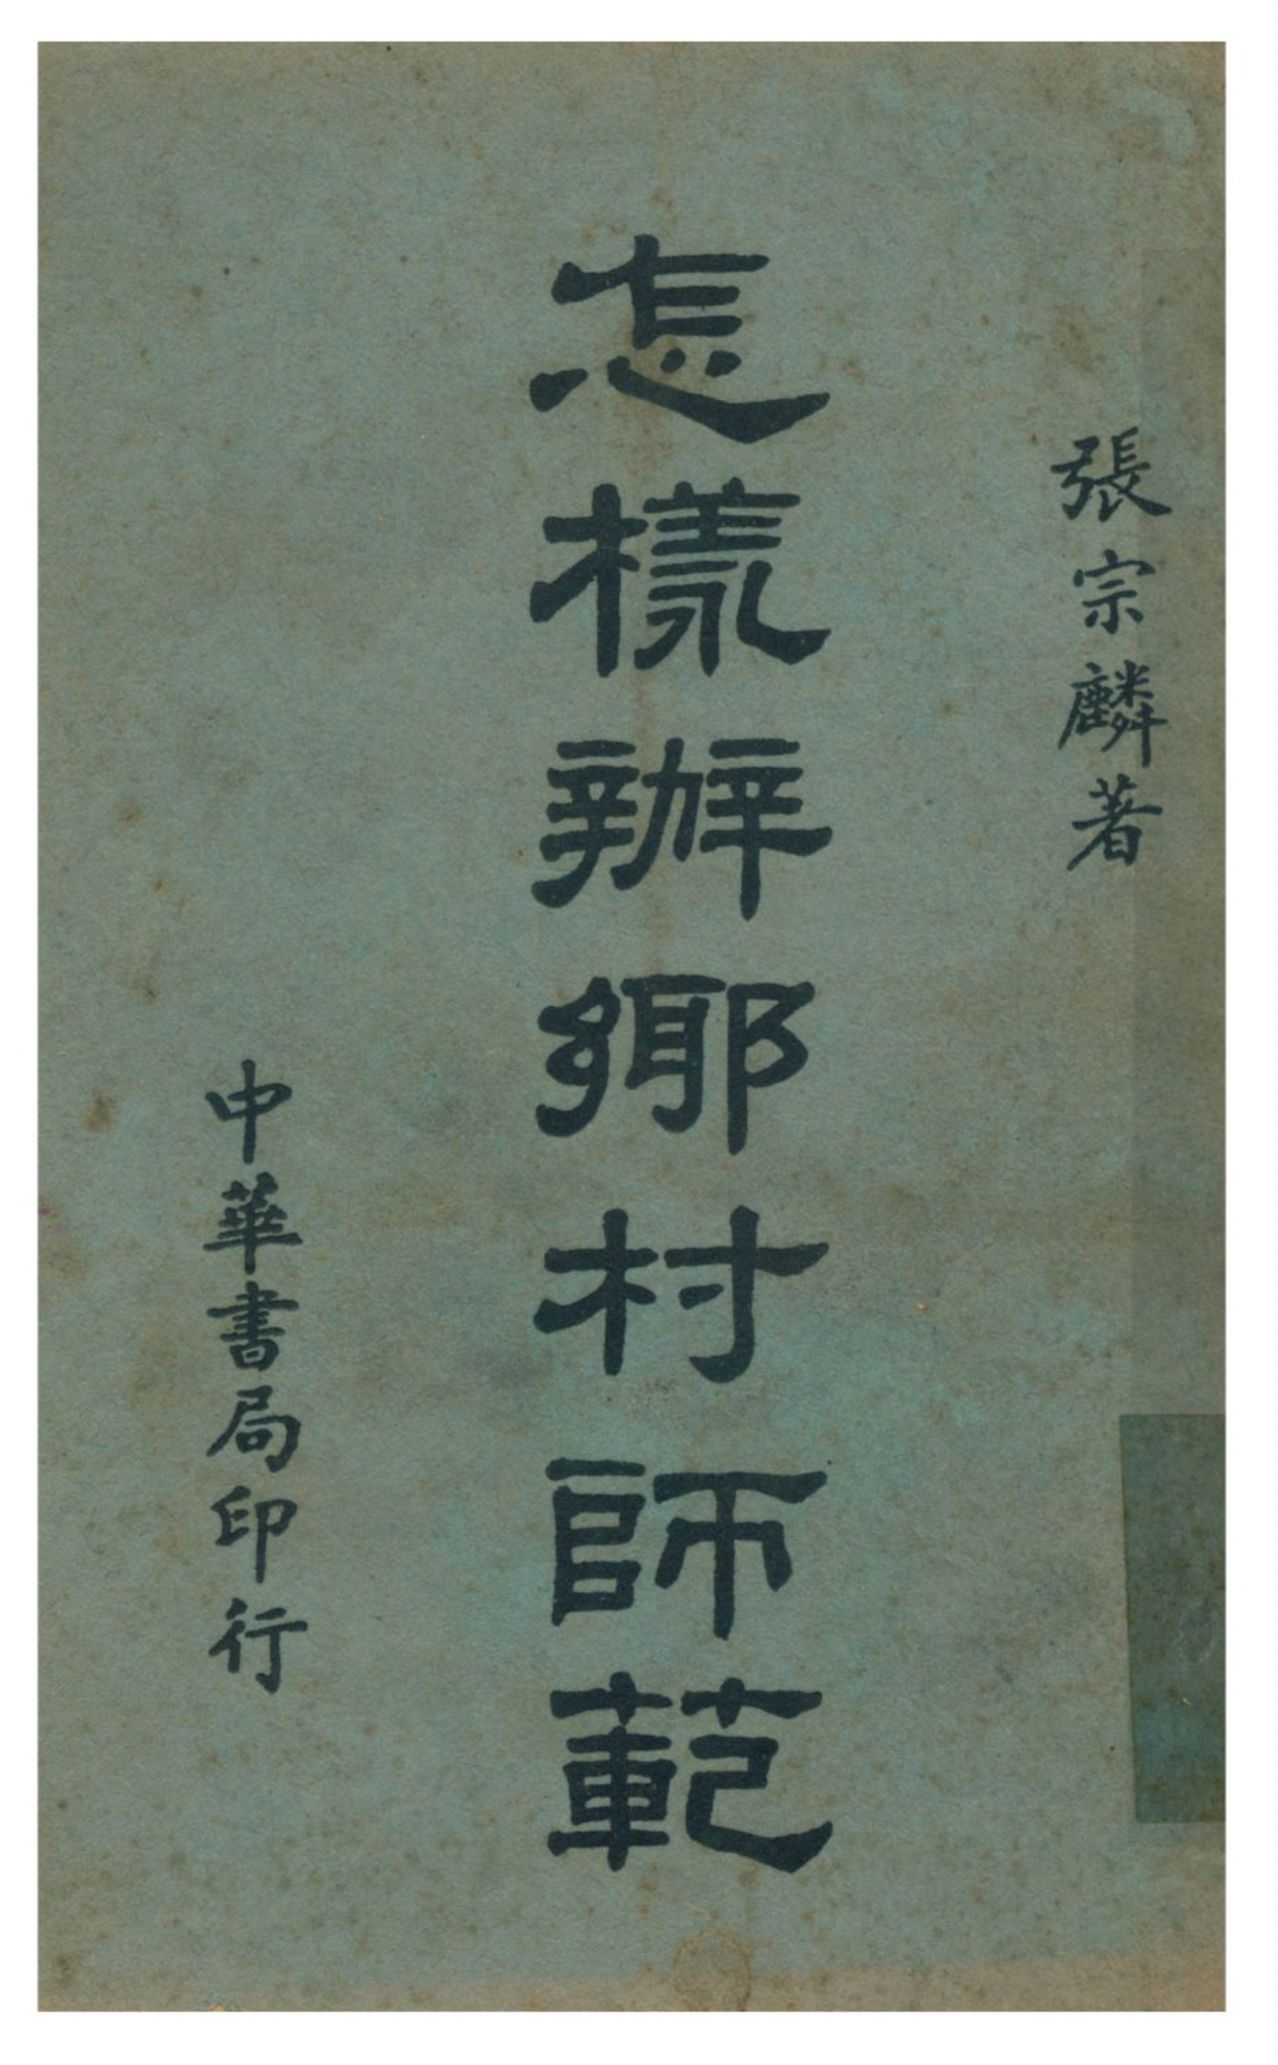 張宗麟著
怎樣辦鄉村師範
中華書局印行